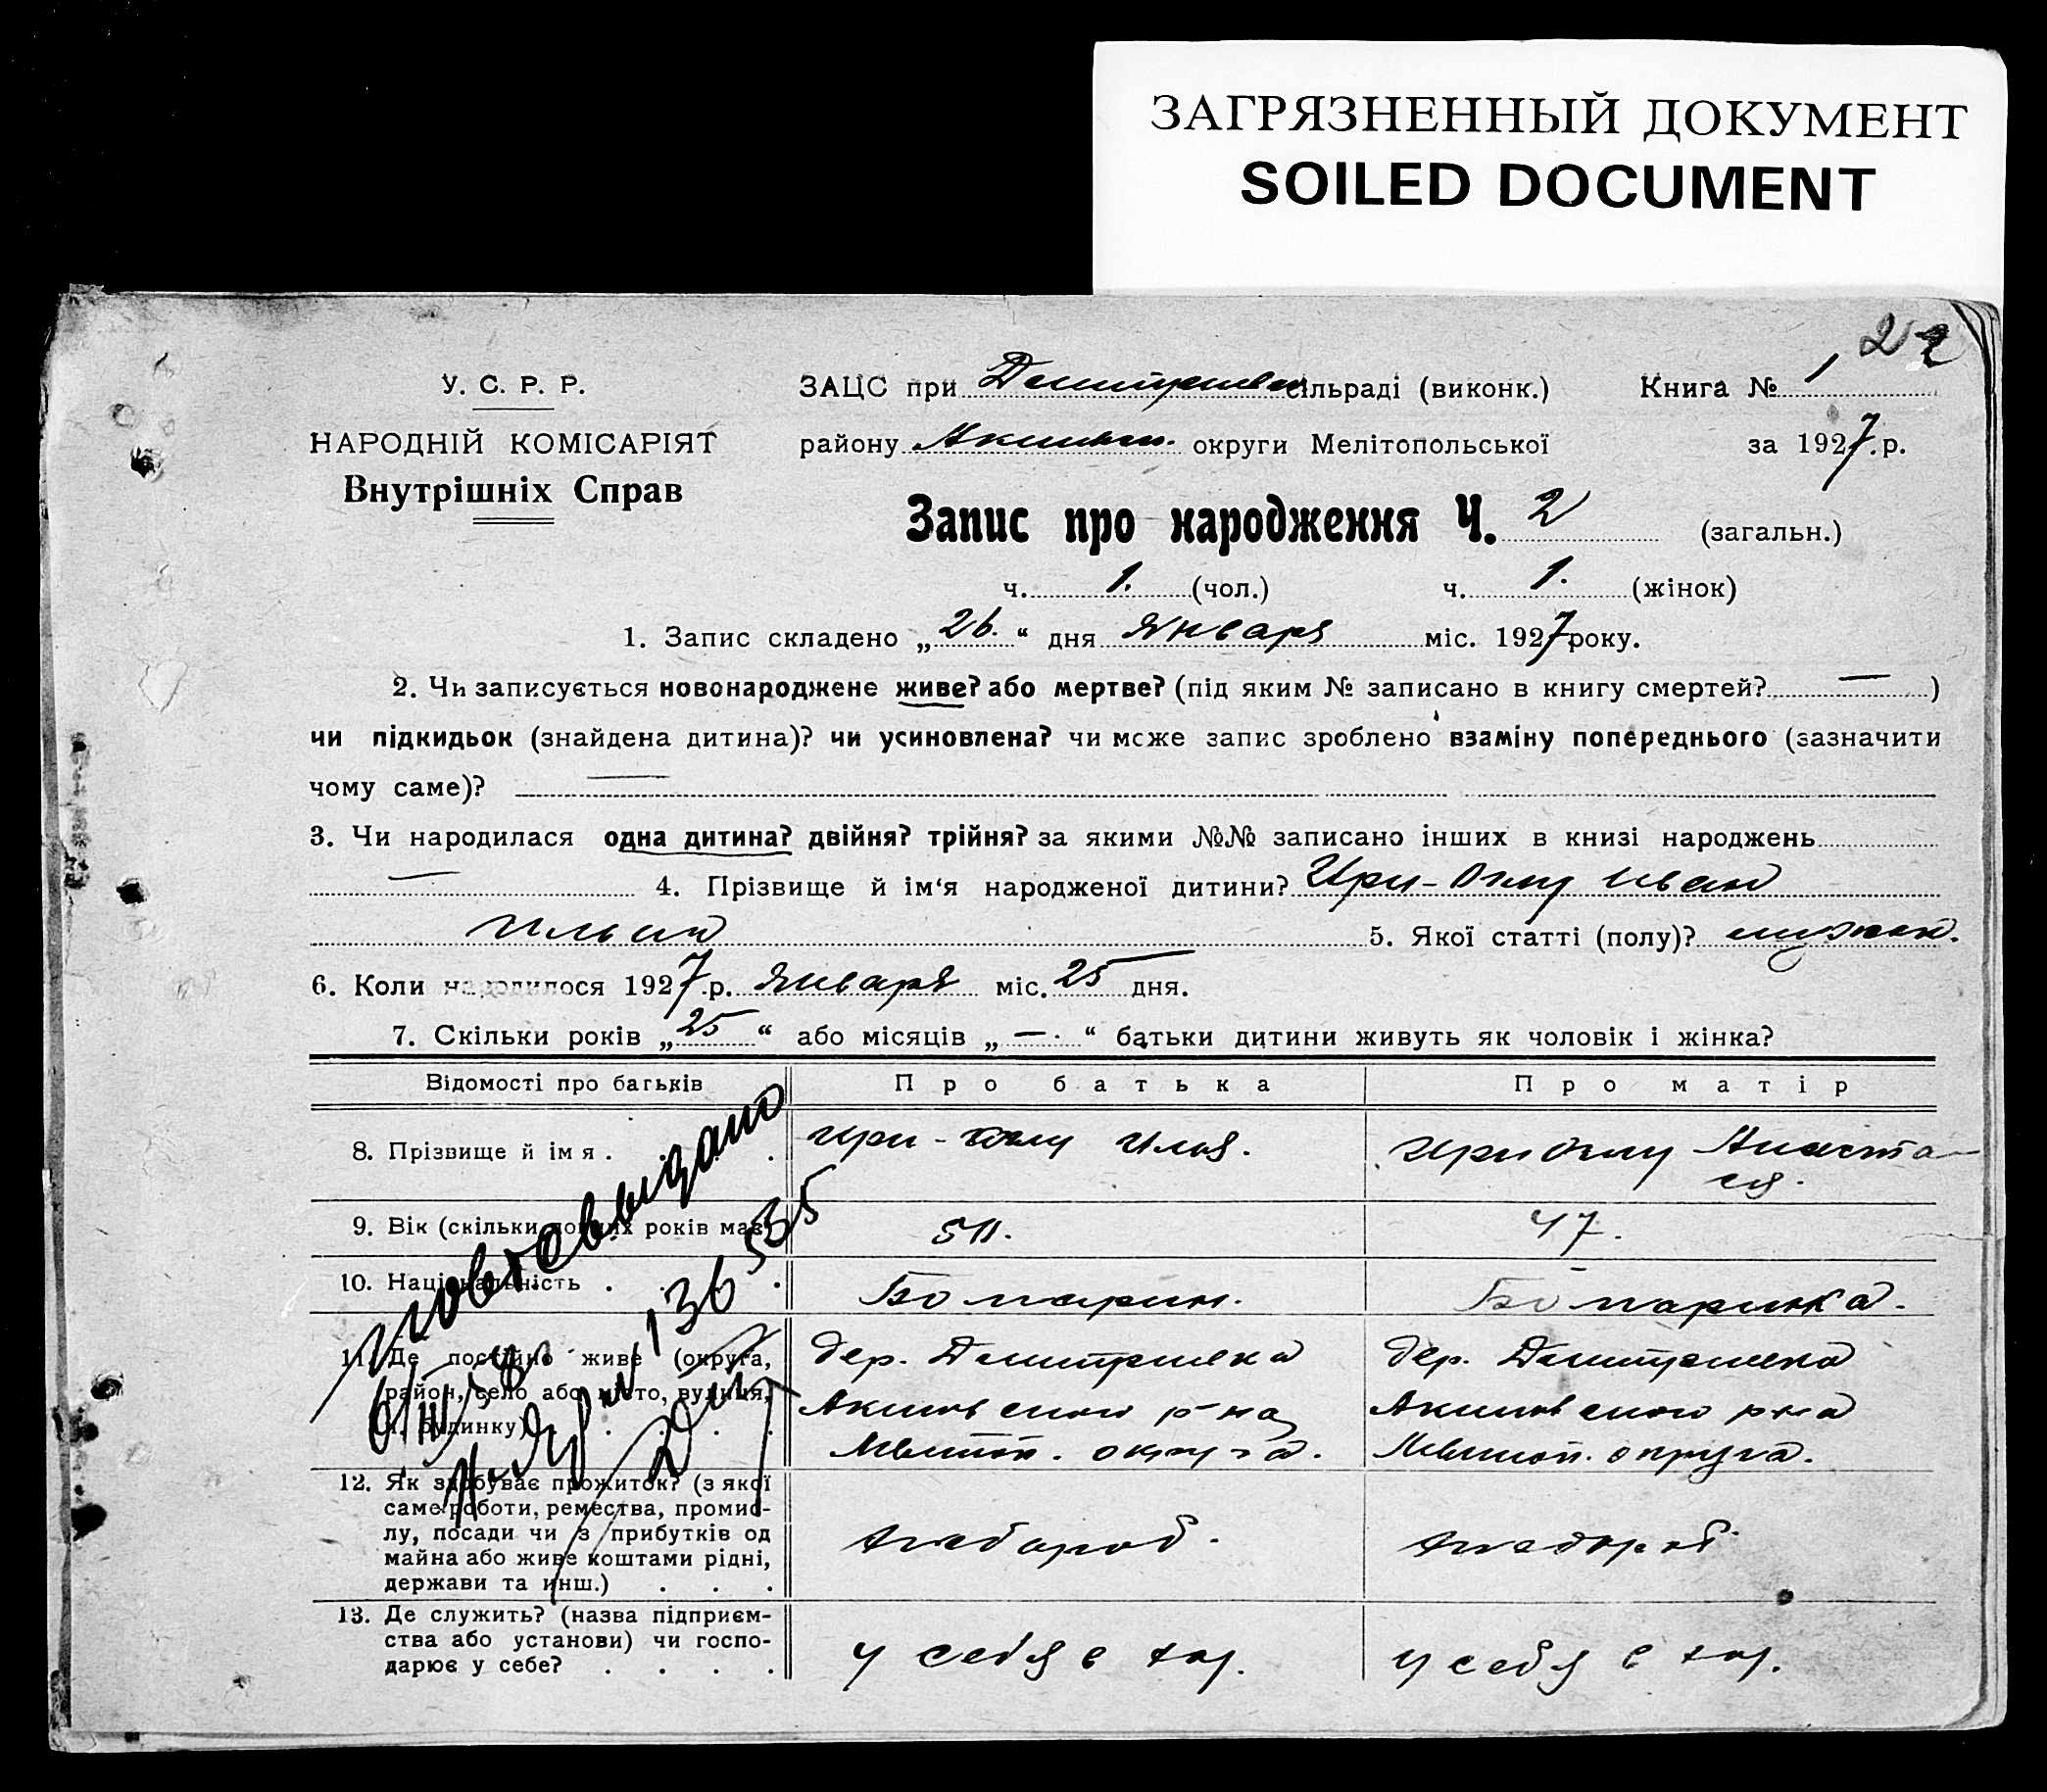 ЗАГРЯЗНЕННЫЙ ДОКУМЕНТ
SOILED DOCUMENT
У. С. Р. Р.
НАРОДНІЙ КОМІСАРІЯТ
Внутрішніх Справ
ЗАЦС при сільраді (виконк.) Книга № 1
району округи Мелітопольської за 1927 р.
Запис про народження Ч. 2 (загальн.)
ч. 1. (чол.) ч. 1. (жінок)
1. Запис складено „26.“ дня Января міс. 1927 року.
2. Чи записується новонароджене живе? або мертве? (під яким № записано в книгу смертей? — )
чи підкидьок (знайдена дитина)? чи усиновлена? чи може запис зроблено взаміну попереднього (зазначити
чому саме)? —
3. Чи народилася одна дитина? двійня? трійня? за якими №№ записано інших в книзі народжень
— 4. Прізвище й ім‘я народженої дитини? Иван
5. Якої статті (полу)?
6. Коли народилося 1927 р. Января міс. 25 дня.
7. Скільки років „25“ або місяців „—.“ батьки дитини живуть як чоловік і жінка?
Відомості про батьків Про батька Про матір
8. Прізвище й імя . Илья. Анаста-
сия.
9. Вік (скільки повних років має) 47.
10. Національність .
11. Де постійно живе (округа, дер. Дмитриевка дер. Дмитриевка
район, село або місто, вулиця, Акимовского р-на Акимовского р-на
ч. будинку) . Мелитоп. округа. Мелитоп. округа.
12. Як здобуває прожиток? (з якої
саме роботи, ремества, промис-
лу, посади чи з прибутків од
майна або живе коштами рідні,
держави та инш.) . . . хлебороб. хлебороб.
13. Де служить? (назва підприєм-
ства або установи) чи госпо- у себя в хоз. у себя в хоз.
дарює у себе? . . . .